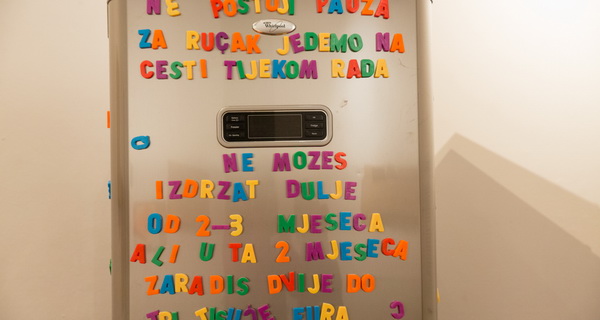 NE POSTOJI PAUZA
Whirlpool
ZA RUÇAK JEDEMO NA
CESTI TIJEKOM RADA
NE MOZES
IZDRZAT DULJE
OD 2-3 MJESECA
ALI U TA 2 MJESECA
ZARADIS DVIJE DO
TRI TISUĆE EURA